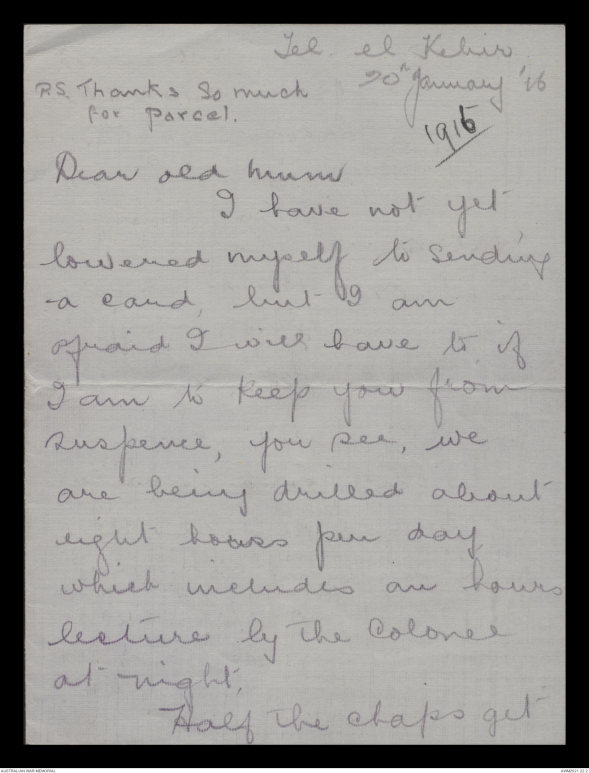 Tel el Kebir
20th January '16
P.S. Thanks so much
for parcel.
1916
Dear old Mum
I have not yet
lowered myself to sending
a card, but I am
afraid I will have to if
I am to keep you from
suspence, you see, we
are being drilled about
eight hours per day
which includes an hours
lecture by the Colonel
at night,
Half the chaps get
AUSTRALIAN WAR MEMORIAL
AWM2021.22.2